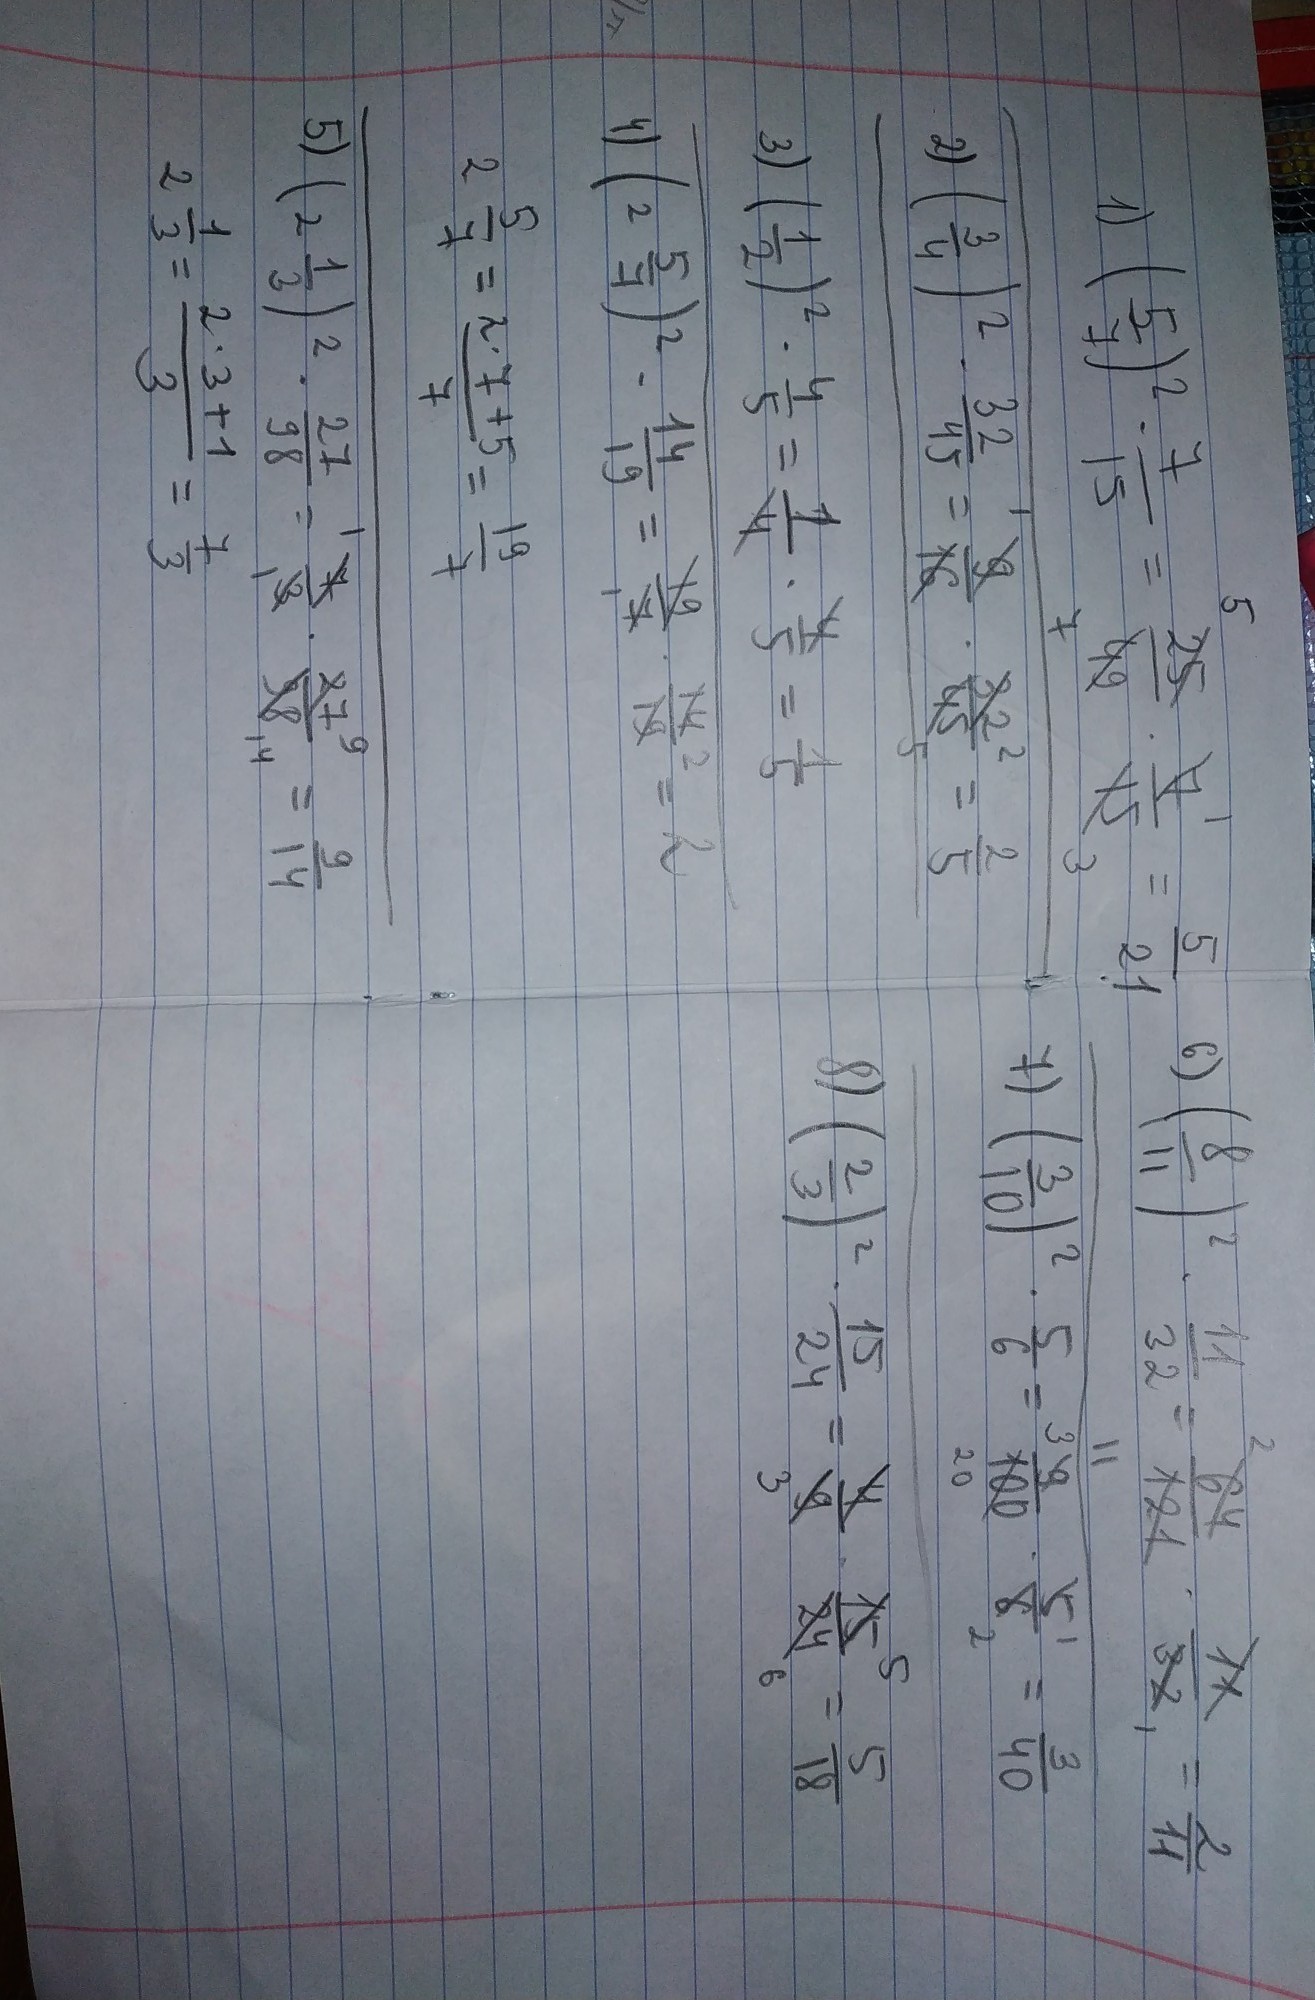 1) (5/7)² · 7/15 = 25/49 · 7/15 = 5/21
5 7 1 3
2) (3/4)² · 32/45 = 9/16 · 32/45 = 2/5
1 2 5
3) (1/2)² · 4/5 = 1/4 · 4/5 = 1/5
4) (2 5/7)² · 14/19 = 19/7 · 14/19 = 2
1 2
2 5/7 = 2·7+5/7 = 19/7
5) (2 1/3)² · 27/98 = 7/3 · 27/98 = 9/14
1 1 9 14
2 1/3 = 2·3+1/3 = 7/3
6) (8/11)² · 11/32 = 64/121 · 11/32 = 2/11
2 11 1
7) (3/10)² · 5/6 = 9/100 · 5/6 = 3/40
3 20 1 2
8) (2/3)² · 15/24 = 4/9 · 15/24 = 5/18
3 5 6